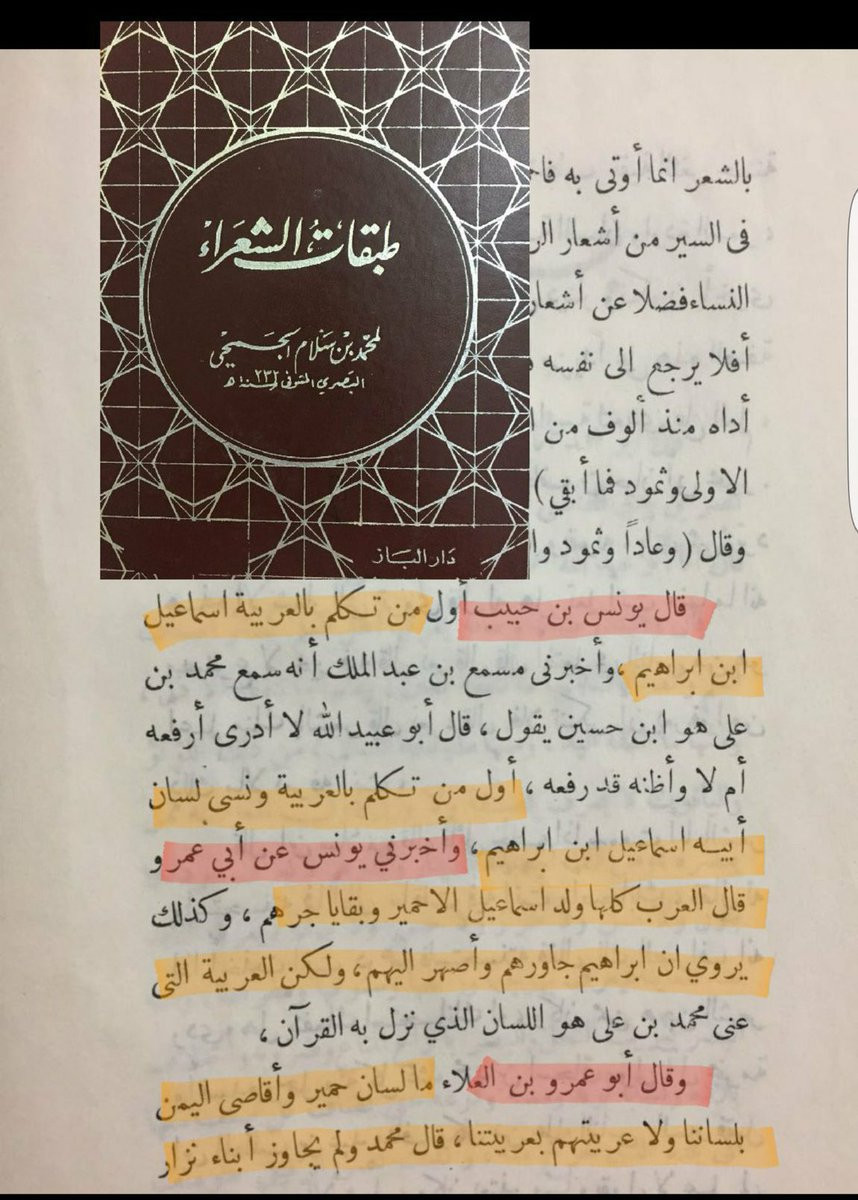 طبقات الشعراء
لمحمد بن سلام الجمحي
البصري المتوفى سنة ٢٣٢ هـ
دار الباز
بالشعر انما أوتى به
فى السير من أشعار
النساء فضلا عن أشعار
أفلا يرجع الى نفسه
أداه منذ ألوف من
الاولى وثمود فما أبقي)
وقال (وعاداً وثمود
قال يونس بن حبيب أول من تكلم بالعربية اسماعيل
ابن ابراهيم، وأخبرنى مسمع بن عبد الملك أنه سمع محمد بن
على هو ابن حسين يقول، قال أبو عبيد الله لا أدرى أرفعه
أم لا وأظنه قد رفعه، أول من تكلم بالعربية ونسى لسان
أبيه اسماعيل ابن ابراهيم، وأخبرني يونس عن أبي عمر و
قال العرب كلها ولد اسماعيل الا حمير وبقايا جرهم، وكذلك
يروي ان ابراهيم جاورهم وأصهر اليهم، ولكن العربية التى
عنى محمد بن على هو اللسان الذي نزل به القرآن،
وقال أبو عمرو بن العلاء ما لسان حمير وأقاصى اليمن
بلساننا ولا عربيتهم بعربيتنا، قال محمد ولم يجاوز أبناء نزار